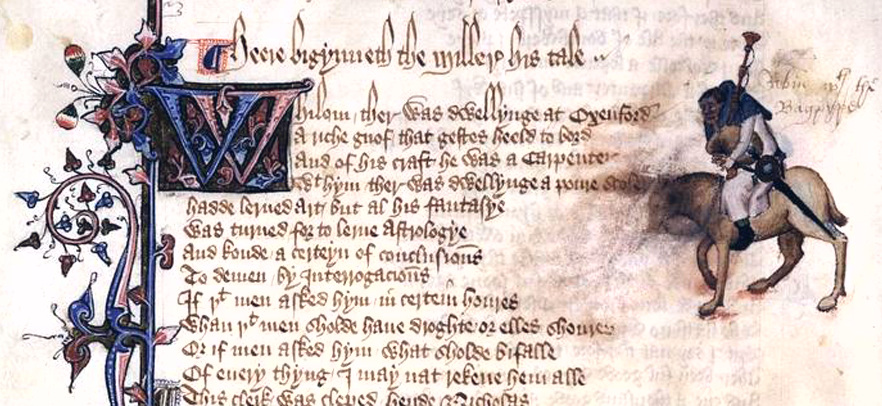 Heere bigynneth the Millere his tale
Whilom ther was dwellynge at Oxenford
A riche gnof that gestes heeld to bord
And of his craft he was a Carpenter
With hym ther was dwellynge a poure scoler
hadde lerned art but al his fantasye
Was turned for to lerne Astrologye
And koude a certeyn of conclusions
To demen by Interrogacions
If þt men asked hym in certein houres
Whan þt men sholde haue droghte or elles shoures
Or if men asked hym what sholde bifalle
Of euery thyng I may nat rekene hem alle
This clerk was cleped hende Nicholas
Robin wth the
Bagpype